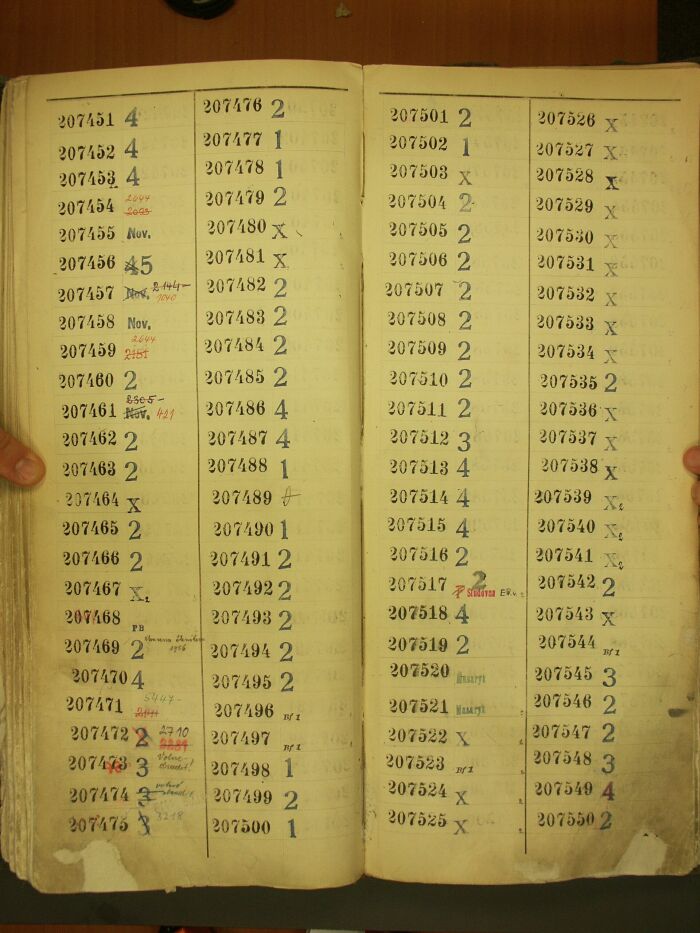 207451 4
207452 4
207453 4
207454 2044
207455 Nov.
207456 45
207457 Nov. 2144-
1040
207458 Nov.
207459 2644
2151
207460 2
207461 Nov. 2305- 421
207462 2
207463 2
207464 X
207465 2
207466 2
207467 X 1
207468 PB
207469 2
207470 4
207471 5447-
207472 2 2710
207473 3 Volné
207474 3
207475 3 3218
207476 2
207477 1
207478 1
207479 2
207480 X
207481 X
207482 2
207483 2
207484 2
207485 2
207486 4
207487 4
207488 1
207489
207490 1
207491 2
207492 2
207493 2
207494 2
207495 2
207496 Bf 1
207497 Bf 1
207498 1
207499 2
207500 1
207501 2
207502 1
207503 X
207504 2
207505 2
207506 2
207507 2
207508 2
207509 2
207510 2
207511 2
207512 3
207513 4
207514 4
207515 4
207516 2
207517 2 Studovna
207518 4
207519 2
207520 Masaryk
207521 Masaryk
207522 X
207523 Bf 1
207524 X
207525 X
207526 X
207527 X
207528 X
207529 X
207530 X
207531 X
207532 X
207533 X
207534 X
207535 2
207536 X
207537 X
207538 X
207539 X 2
207540 X 2
207541 X 2
207542 2
207543 X
207544 Bf 1
207545 3
207546 2
207547 2
207548 3
207549 4
207550 2